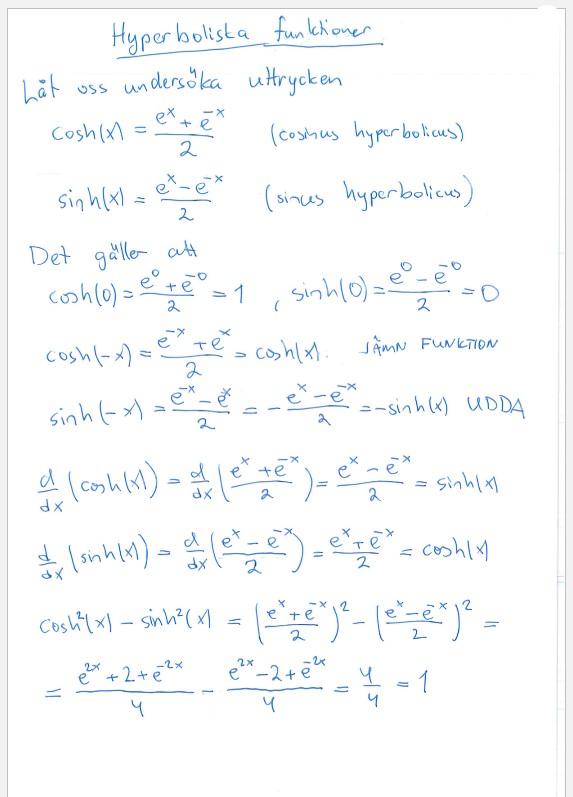 Hyperboliska funktioner
Låt oss undersöka uttrycken
cosh(x) = (e^x + e^-x)/2 (cosinus hyperbolicus)
sinh(x) = (e^x - e^-x)/2 (sinus hyperbolicus)
Det gäller att
cosh(0) = (e^0 + e^-0)/2 = 1 , sinh(0) = (e^0 - e^-0)/2 = 0
cosh(-x) = (e^-x + e^x)/2 = cosh(x). JÄMN FUNKTION
sinh(-x) = (e^-x - e^x)/2 = - (e^x - e^-x)/2 = -sinh(x) UDDA
d/dx (cosh(x)) = d/dx ((e^x + e^-x)/2) = (e^x - e^-x)/2 = sinh(x)
d/dx (sinh(x)) = d/dx ((e^x - e^-x)/2) = (e^x + e^-x)/2 = cosh(x)
cosh²(x) - sinh²(x) = ((e^x + e^-x)/2)² - ((e^x - e^-x)/2)² =
= (e^2x + 2 + e^-2x)/4 - (e^2x - 2 + e^-2x)/4 = 4/4 = 1